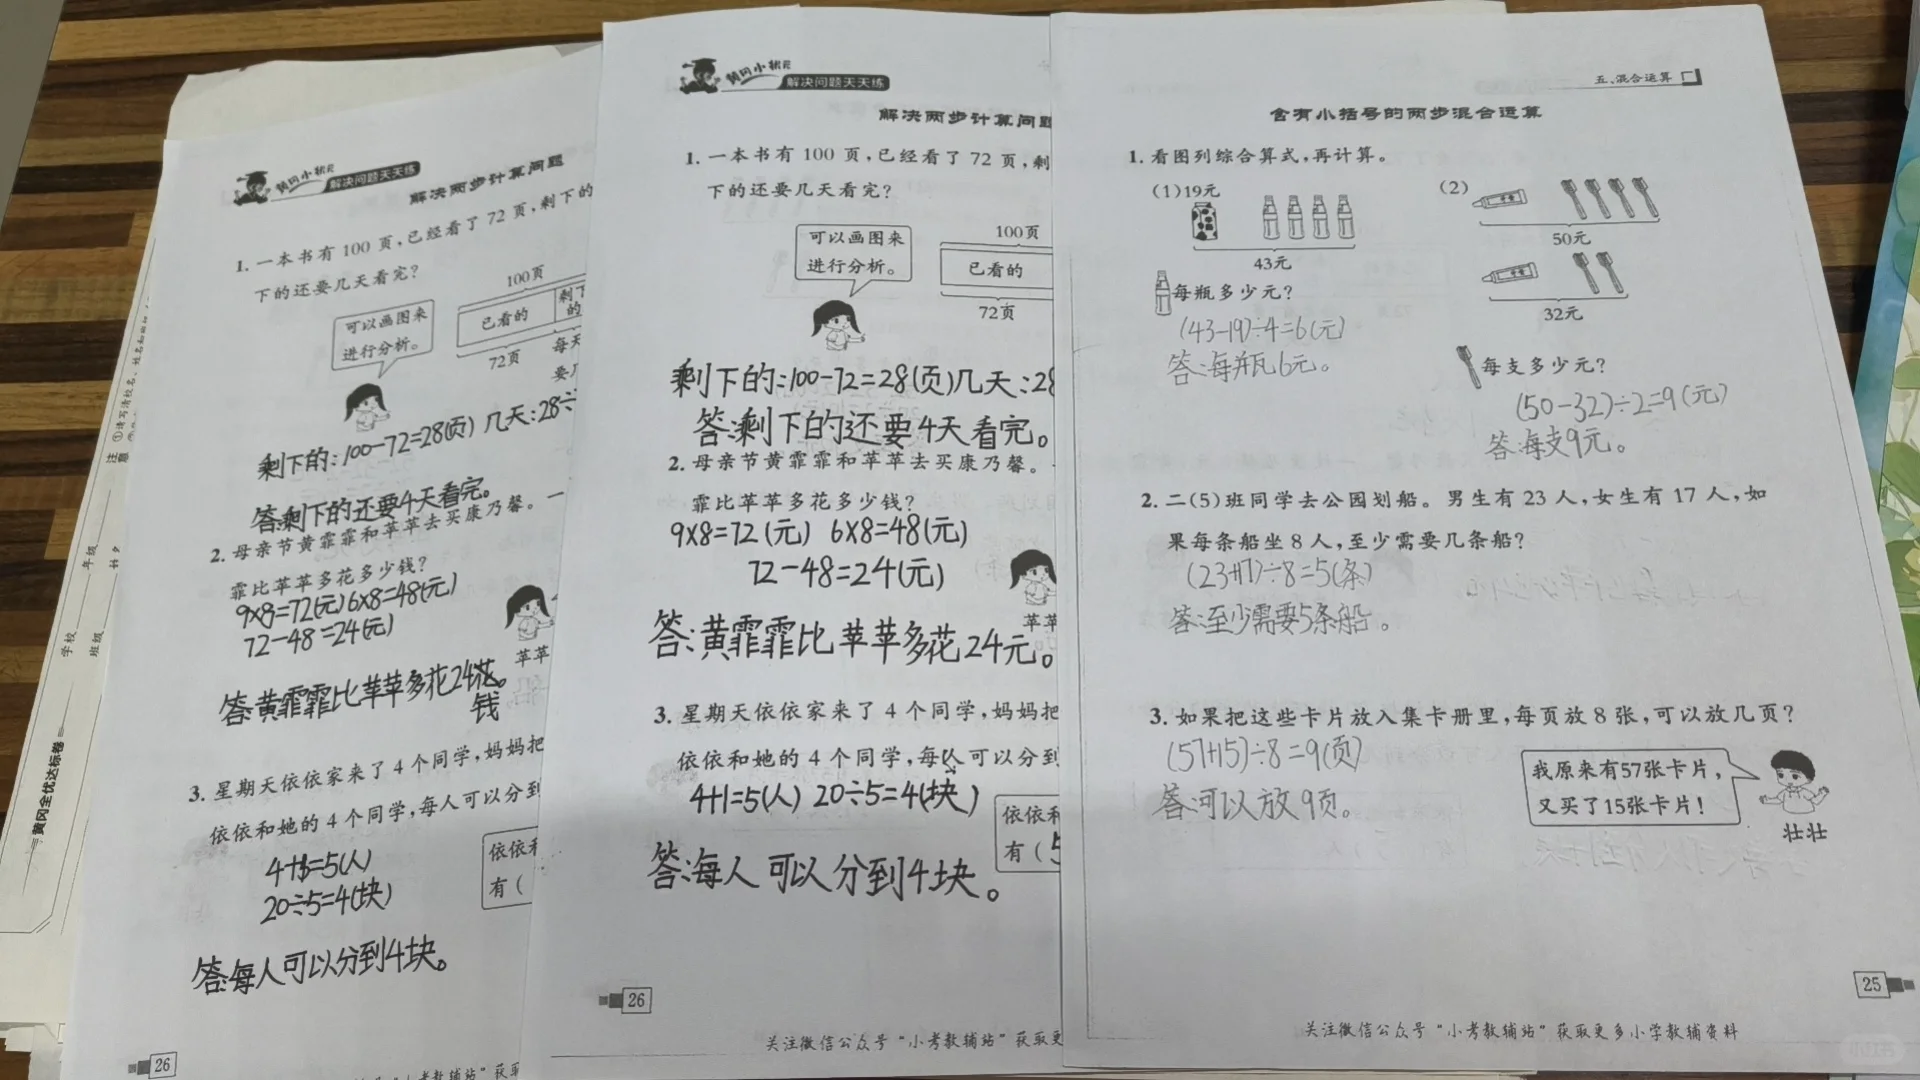 注意
①请写清校名、姓名和班级
年级
学校
班级
黄冈全优达标卷
黄冈小状元
解决问题天天练
解决两步计算问题
1.一本书有100页,已经看了72页,剩下的
下的还要几天看完?
可以画图来
进行分析。
100页
已看的
剩下
的
72页
每天
剩下的:100-72=28(页) 几天:28÷
答:剩下的还要4天看完。
2.母亲节黄霏霏和苹苹去买康乃馨。一
霏比苹苹多花多少钱?
9×8=72(元) 6×8=48(元)
72-48=24(元)
苹苹
答:黄霏霏比苹苹多花24
钱
3.星期天依依家来了4个同学,妈妈把
依依和她的4个同学,每人可以分到
4+1=5(人)
20÷5=4(块)
依依和
有(
答:每人可以分到4块。
26
黄冈小状元
解决问题天天练
解决两步计算问题
1.一本书有100页,已经看了72页,剩
下的还要几天看完?
可以画图来
进行分析。
100页
已看的
72页
剩下的:100-72=28(页)几天:28
答:剩下的还要4天看完。
2.母亲节黄霏霏和苹苹去买康乃馨。
霏比苹苹多花多少钱?
9×8=72(元) 6×8=48(元)
72-48=24(元)
苹苹
答:黄霏霏比苹苹多花24元。
3.星期天依依家来了4个同学,妈妈把
依依和她的4个同学,每人可以分到
4+1=5(人) 20÷5=4(块)
依依和
有(5
答:每人可以分到4块。
26
关注微信公众号“小考教辅站”获取更
五、混合运算
含有小括号的两步混合运算
1.看图列综合算式,再计算。
(1)19元
43元
每瓶多少元?
(43-19)÷4=6(元)
答:每瓶6元。
(2)
50元
32元
每支多少元?
(50-32)÷2=9(元)
答:每支9元。
2.二(5)班同学去公园划船。男生有23人,女生有17人,如
果每条船坐8人,至少需要几条船?
(23+17)÷8=5(条)
答:至少需要5条船。
3.如果把这些卡片放入集卡册里,每页放8张,可以放几页?
(57+15)÷8=9(页)
答:可以放9页。
我原来有57张卡片,
又买了15张卡片!
壮壮
25
关注微信公众号“小考教辅站”获取更多小学教辅资料
小红书